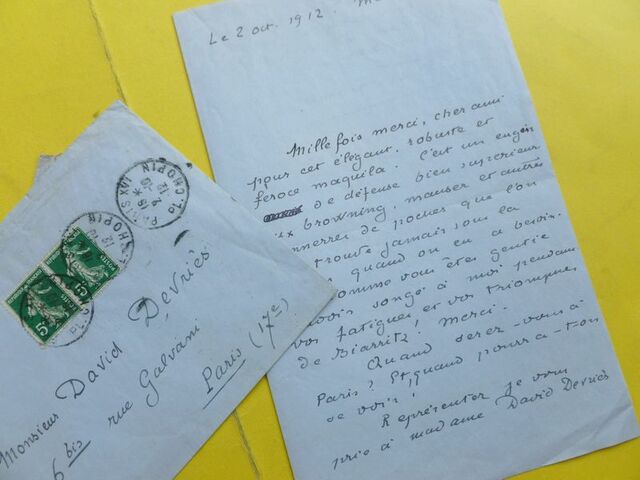 Le 2 oct. 1912.
Mille fois merci, cher ami
pour cet élégant, robuste et
féroce maquila. C'est un engin
de défense bien supérieur
aux browning, mauser et autres
tonnerres de poches que l'on
trouve jamais sous la
quand on en a besoin.
Comme vous êtes gentil
avoir songé à moi pendant
vos fatigues et vos triomphes
de Biarritz! Merci.
Quand serez-vous à
Paris? Et quand pourra-t-on
se voir?
Représenter je vous
prie à madame David Devriès
PARIS IX
PL. CHOPIN
5c
5c
Monsieur David DeVriès
6 bis rue Galvani
Paris (17e)